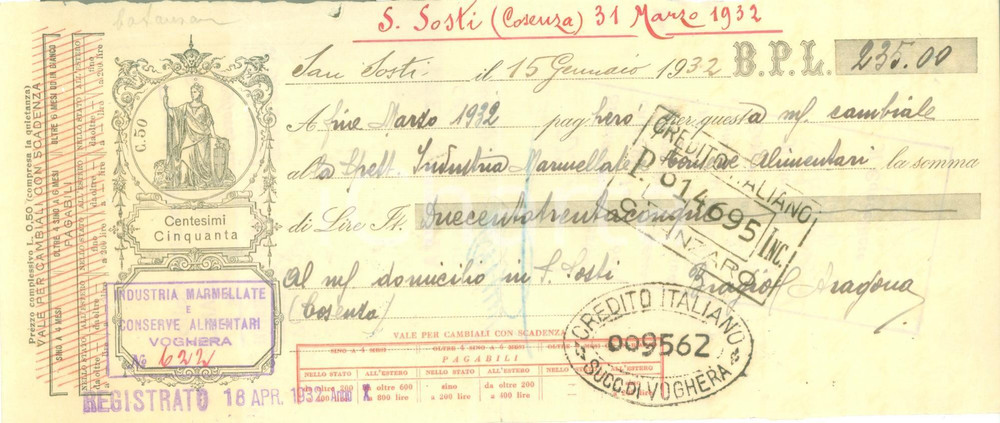 S. Sosti (Cosenza) 31 Marzo 1932
San Sosti il 15 Gennaio 1932 B.P.L. 235.00
A fine Marzo 1932 pagherò per questa mf. cambiale
alla Spett. Industria Marmellate Conserve Alimentari la somma
di Lire It. Duecentotrentacinque
Al mf domicilio in S. Sosti Aragona
(Cosenza)
Prezzo complessivo L. 0.50 (compresa la quietanza)
VALE PER CAMBIALI CON SCADENZA
PAGABILI
SINO A 4 MESI
OLTRE 4 SINO A 6 MESI
OLTRE 6 MESI OD IN BIANCO
C. 50
Centesimi
Cinquanta
INDUSTRIA MARMELLATE
E
CONSERVE ALIMENTARI
VOGHERA
No 622
REGISTRATO 18 APR. 1932 Anno X.
CREDITO ITALIANO
P. 014695 INC.
CATANZARO
CREDITO ITALIANO
009562
SUCC. DI VOGHERA
VALE PER CAMBIALI CON SCADENZA
SINO A 4 MESI OLTRE 4 A 6 MESI OLTRE 6 MESI
PAGABILI
NELLO STATO ALL'ESTERO NELLO STATO ALL'ESTERO NELLO STATO ALL'ESTERO
da oltre 200 oltre 600 sino da oltre 200
800 lire a 200 lire a 400 lire